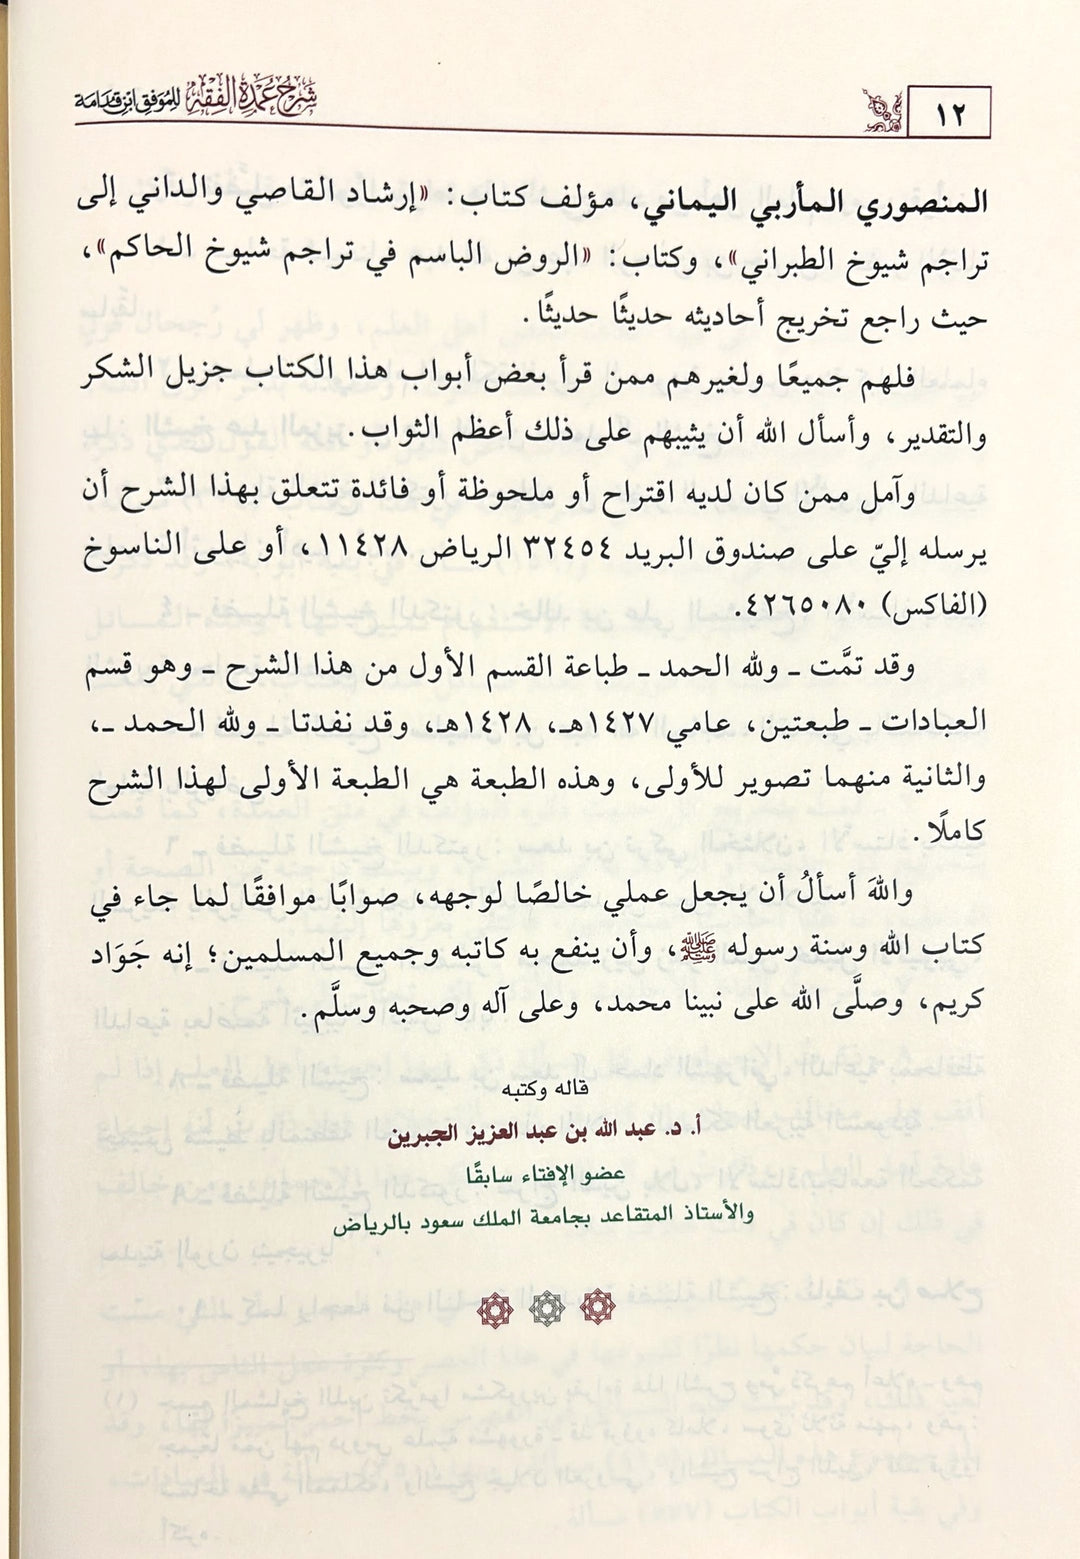 ١٢
شرح عمدة الفقه للموفق ابن قدامة
المنصوري المأربي اليماني، مؤلف كتاب: «إرشاد القاصي والداني إلى
تراجم شيوخ الطبراني»، وكتاب: «الروض الباسم في تراجم شيوخ الحاكم»،
حيث راجع تخريج أحاديثه حديثًا حديثًا.
فلهم جميعًا ولغيرهم ممن قرأ بعض أبواب هذا الكتاب جزيل الشكر
والتقدير، وأسأل الله أن يثيبهم على ذلك أعظم الثواب.
وآمل ممن كان لديه اقتراح أو ملحوظة أو فائدة تتعلق بهذا الشرح أن
يرسله إليّ على صندوق البريد ٣٢٤٥٤ الرياض ١١٤٢٨، أو على الناسوخ
(الفاكس) ٤٢٦٥٠٨٠.
وقد تمَّت ـ ولله الحمد ـ طباعة القسم الأول من هذا الشرح ـ وهو قسم
العبادات ـ طبعتين، عامي ١٤٢٧هـ، ١٤٢٨هـ، وقد نفدتا ـ ولله الحمد ـ،
والثانية منهما تصوير للأولى، وهذه الطبعة هي الطبعة الأولى لهذا الشرح
كاملًا.
واللهَ أسألُ أن يجعل عملي خالصًا لوجهه، صوابًا موافقًا لما جاء في
كتاب الله وسنة رسوله ﷺ، وأن ينفع به كاتبه وجميع المسلمين؛ إنه جَوَاد
كريم، وصلَّى الله على نبينا محمد، وعلى آله وصحبه وسلَّم.
قاله وكتبه
أ. د. عبد الله بن عبد العزيز الجبرين
عضو الإفتاء سابقًا
والأستاذ المتقاعد بجامعة الملك سعود بالرياض